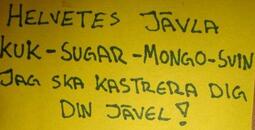 HELVETES JÄVLA
KUK-SUGAR-MONGO-SVIN
JAG SKA KASTRERA DIG
DIN JÄVEL!